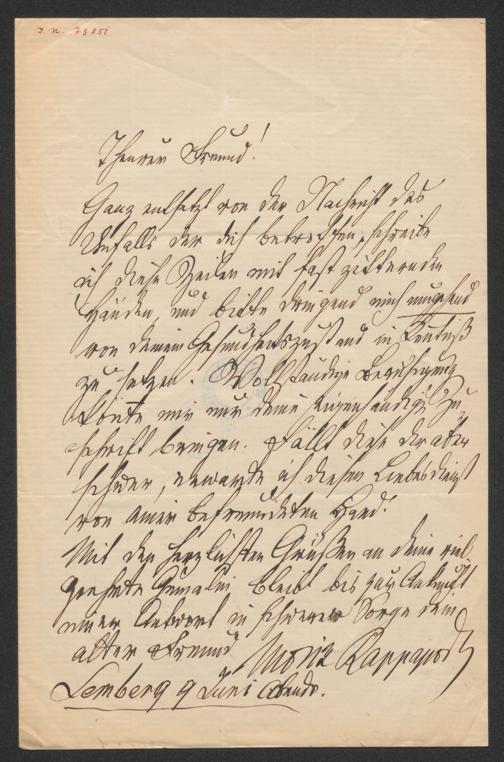 I. N. 73851
Theurer Freund!
Ganz entsetzt von der Nachricht des
Unfalls der dich betroffen, schreibe
ich diese Zeilen mit fast zitternden
Händen, und bitte dringend mich umgehend
von deinem Gesundheitszustand in Kentniß
zu setzen. Vollständige Beruhigung
könte mir nur deine eigenhändige Zu-
schrift bringen. Fällt diese dir aber
schwer, erwarte ich diesen Liebesdienst
von einer befreundeten Hand.
Mit den herzlichsten Grüßen an deine viel-
geehrte Gemalin bleibt bis zur Ankunft
einer Antwort in schwerer Sorge dein
alter Freund
Moritz Rappaport
Lemberg 9 Juni Abends.